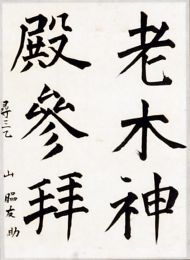 老木神
殿參拜
尋三乙
山脇友助